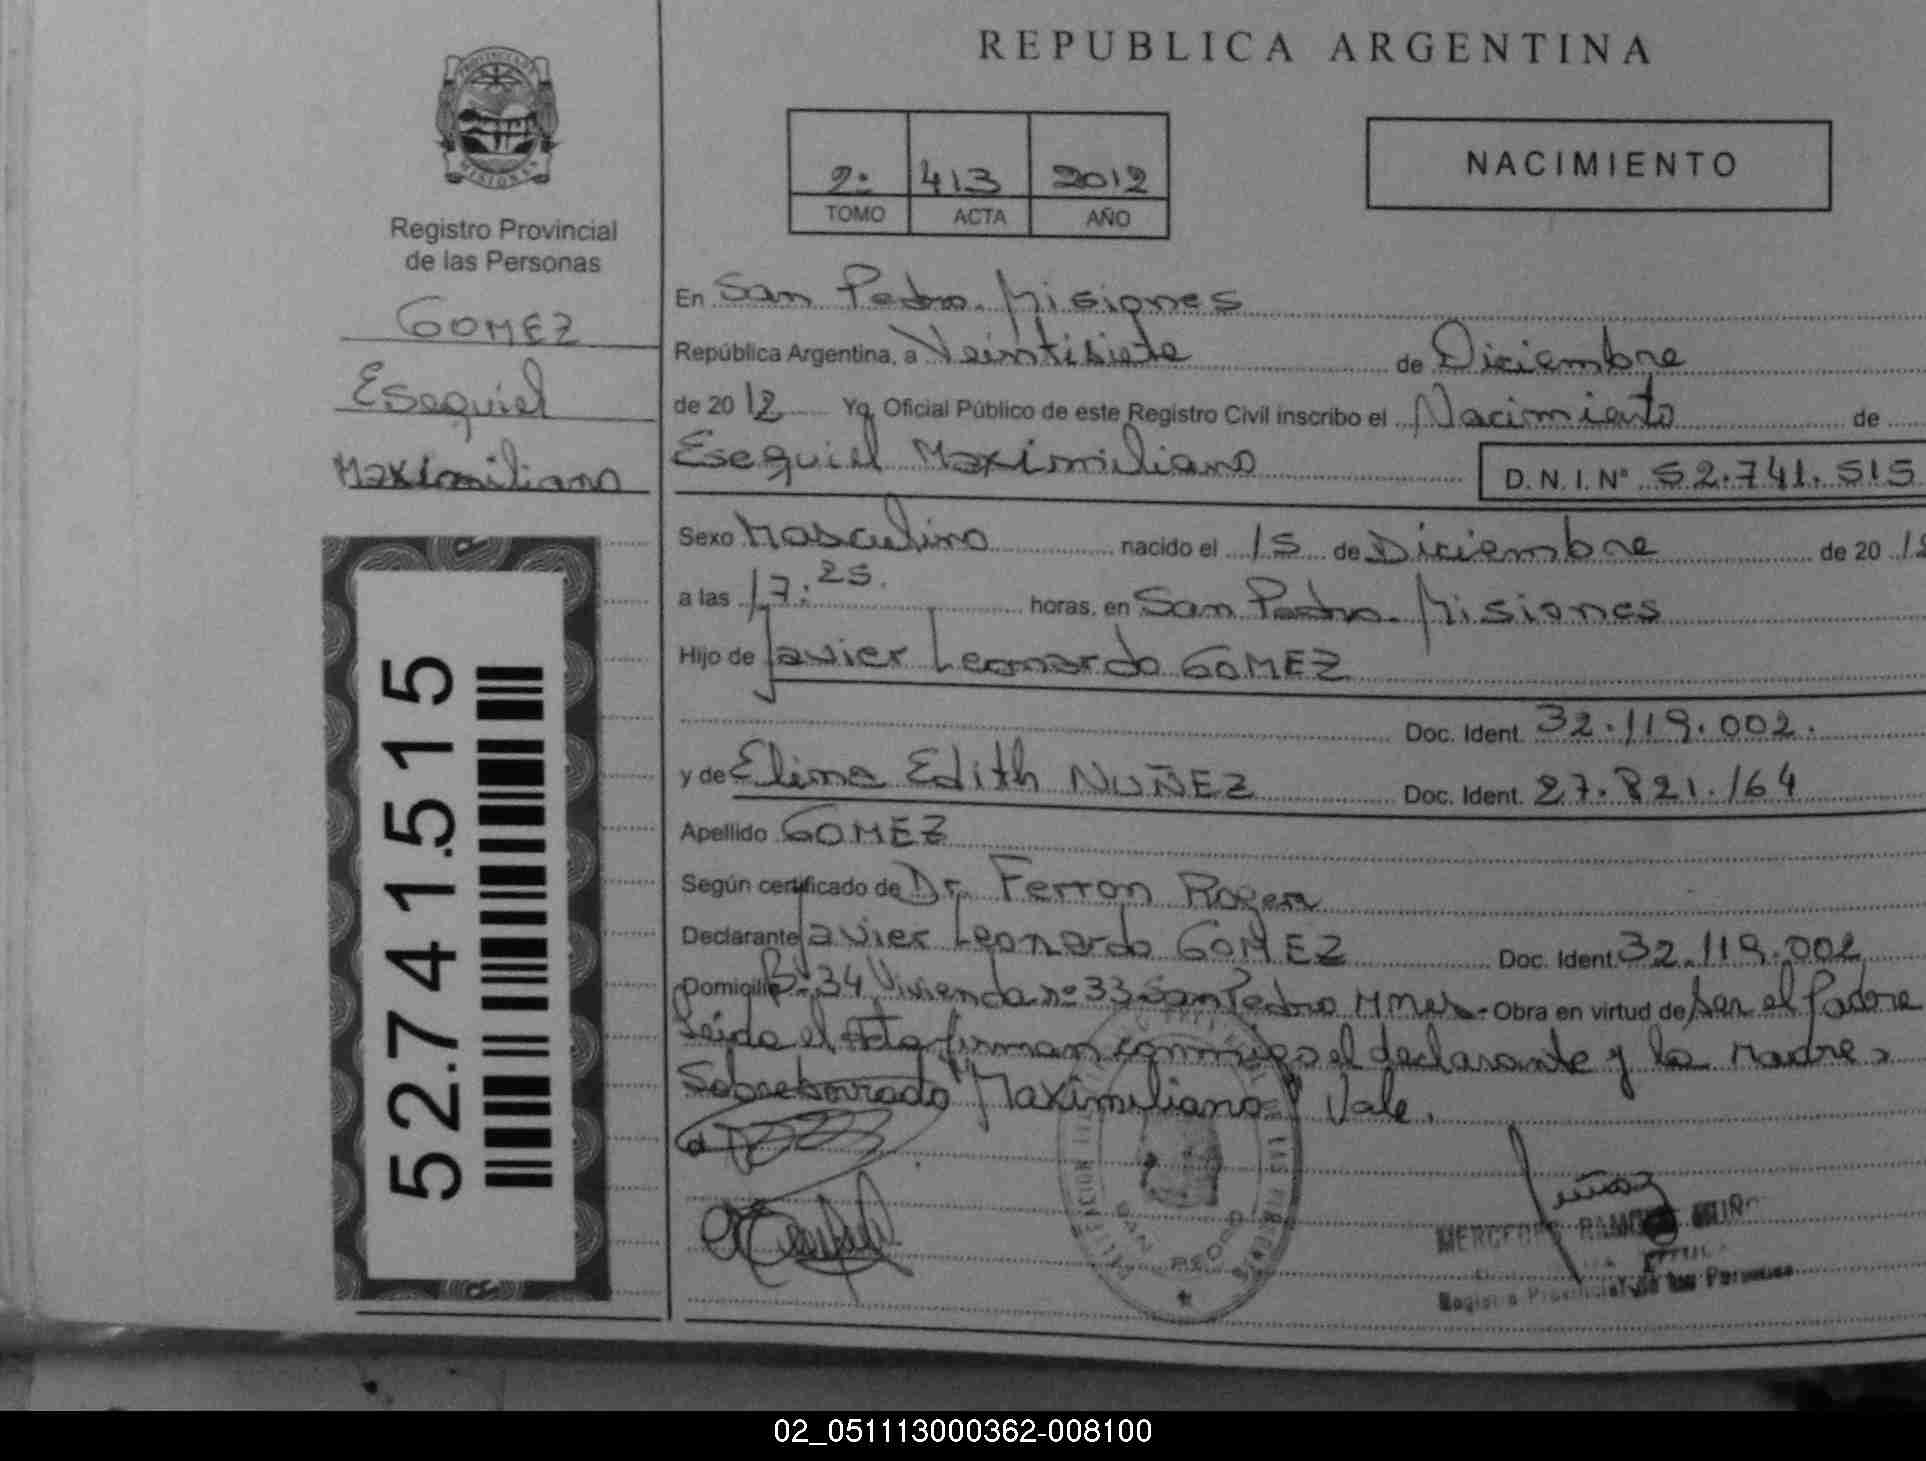 REPUBLICA ARGENTINA
PROVINCIA DE
MISIONES
Registro Provincial
de las Personas
GOMEZ
Esequiel
Maximiliano
52.741.515
2º 413 2012
TOMO ACTA AÑO
NACIMIENTO
En San Pedro. Misiones
República Argentina, a Veintisiete de Diciembre
de 2012 Yo, Oficial Público de este Registro Civil inscribo el Nacimiento de
Esequiel Maximiliano D. N. I. Nº 52.741.515
Sexo Masculino nacido el 15 de Diciembre de 20
a las 17:25. horas, en San Pedro. Misiones
Hijo de Javier Leonardo GOMEZ
Doc. Ident. 32.119.002.
y de Elima Edith NUÑEZ Doc. Ident. 27.821.164
Apellido GOMEZ
Según certificado de Dr. Ferron Roger
Declarante Javier Leonardo GOMEZ Doc. Ident. 32.119.002
Domicilio Bº 34 Vivienda nº 33 San Pedro Mnes.- Obra en virtud de ser el Padre
Leida el Acta firman conmigo el declarante y la Madre,
Sobreborrado "Maximiliano" Vale.
SAN PEDRO
MERCEDES RAMO
Registro Provincial de las Personas
02_051113000362-008100